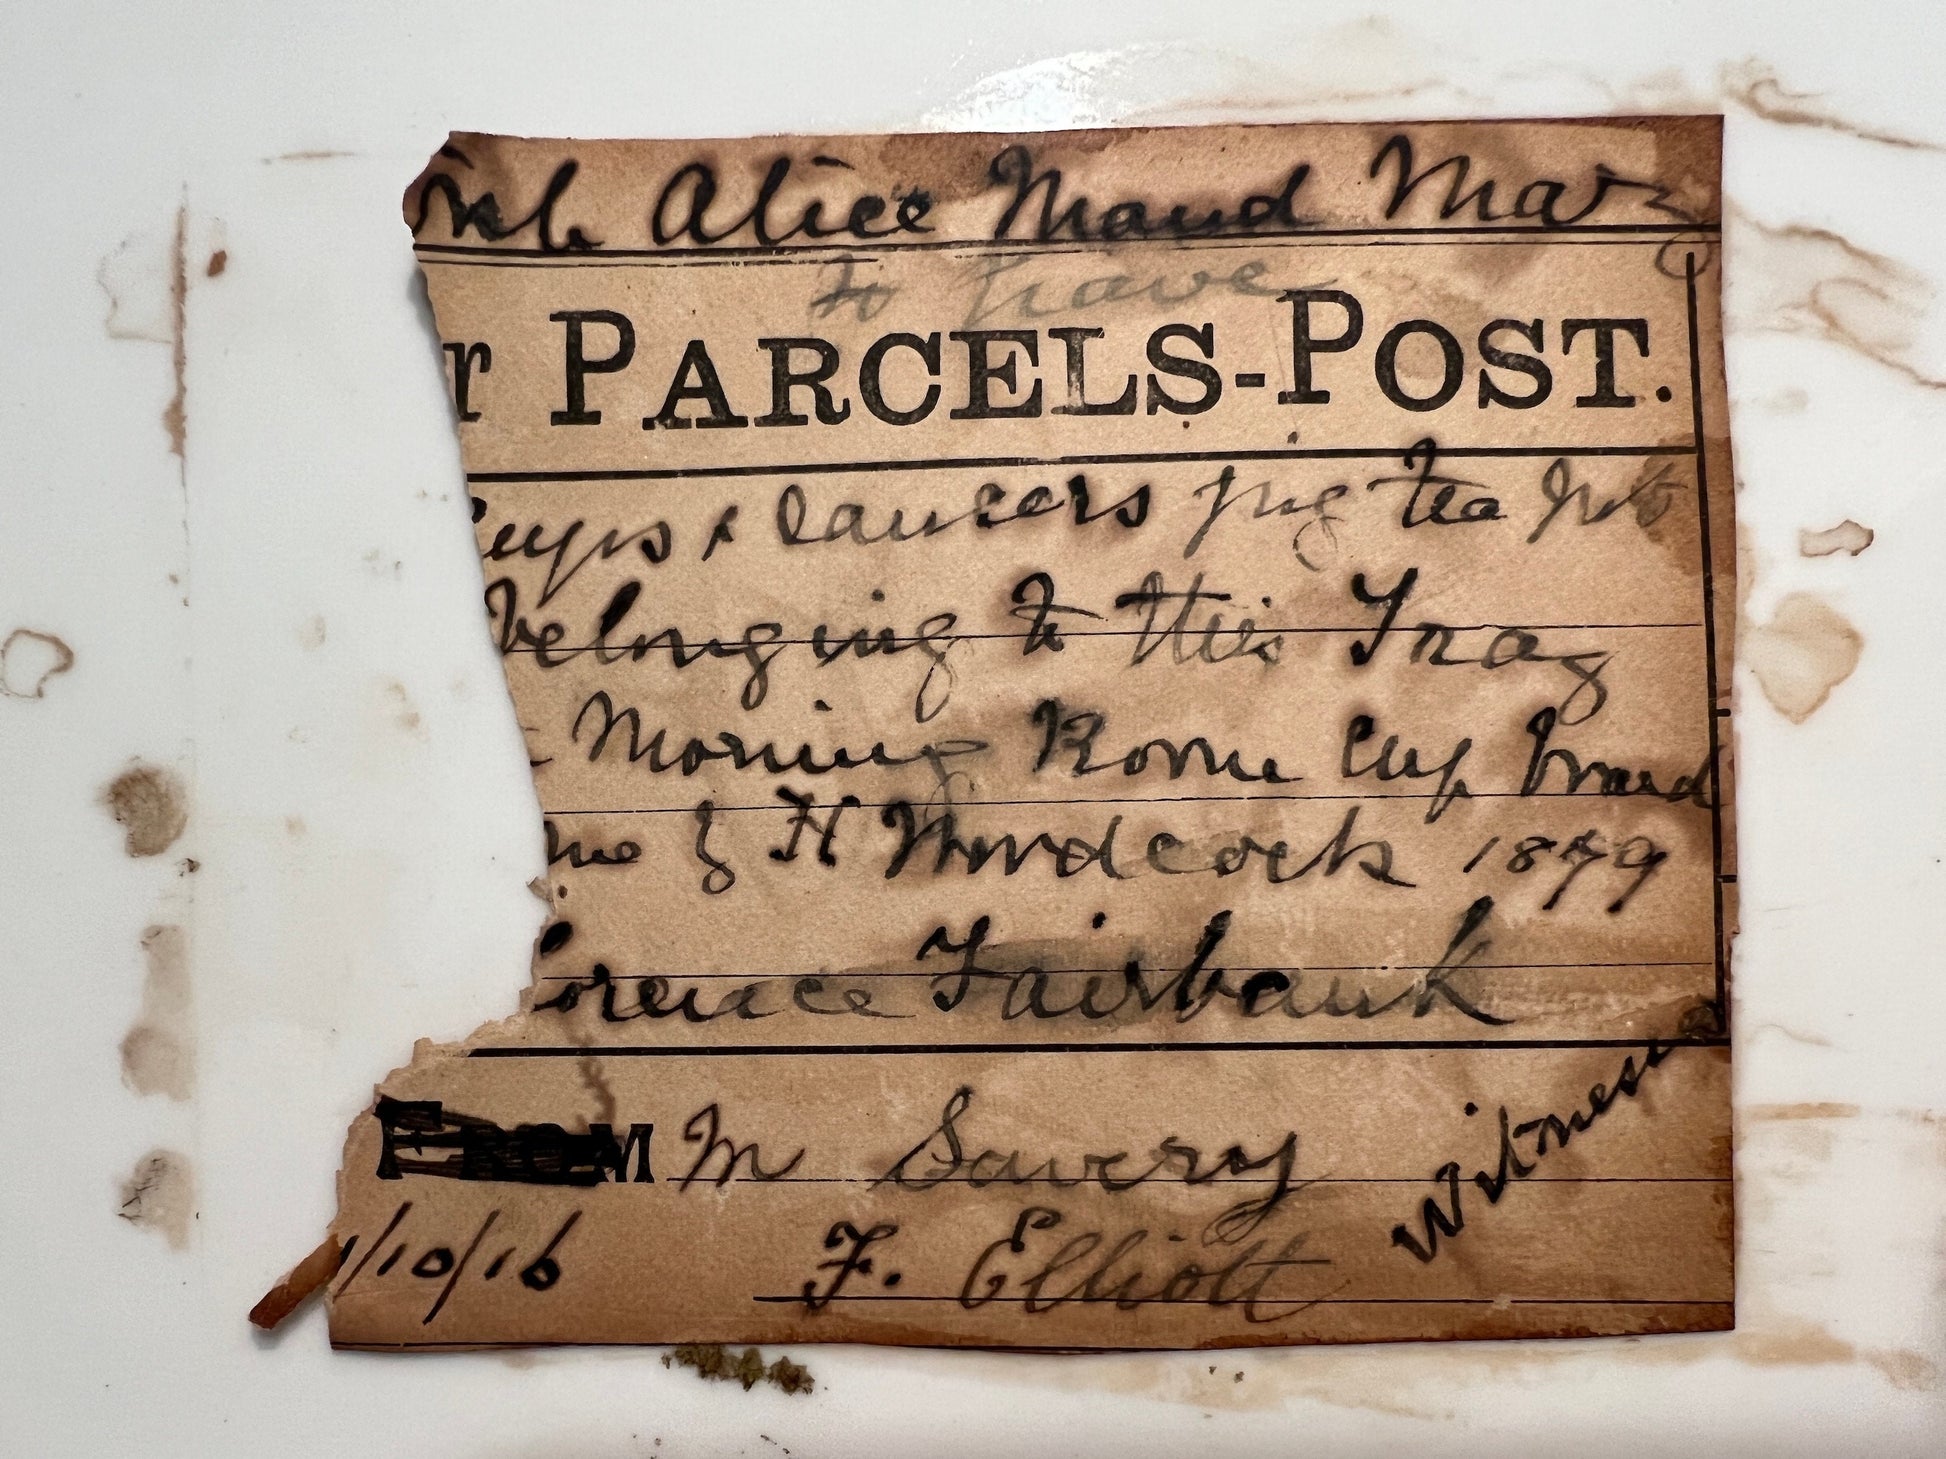 Alice Maud Mary
to have
r PARCELS-POST.
Cups & saucers jug tea Pot
belonging to this Tray
Morning Room Cup board
me by H Murdcock 1879
orence Fairbank
FROM M Savery
Witnessed
1/10/16 F. Elliott